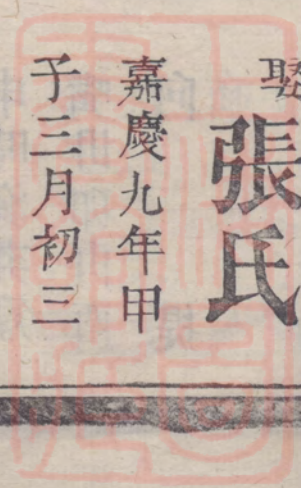 娶
張氏
嘉慶九年甲
子三月初三